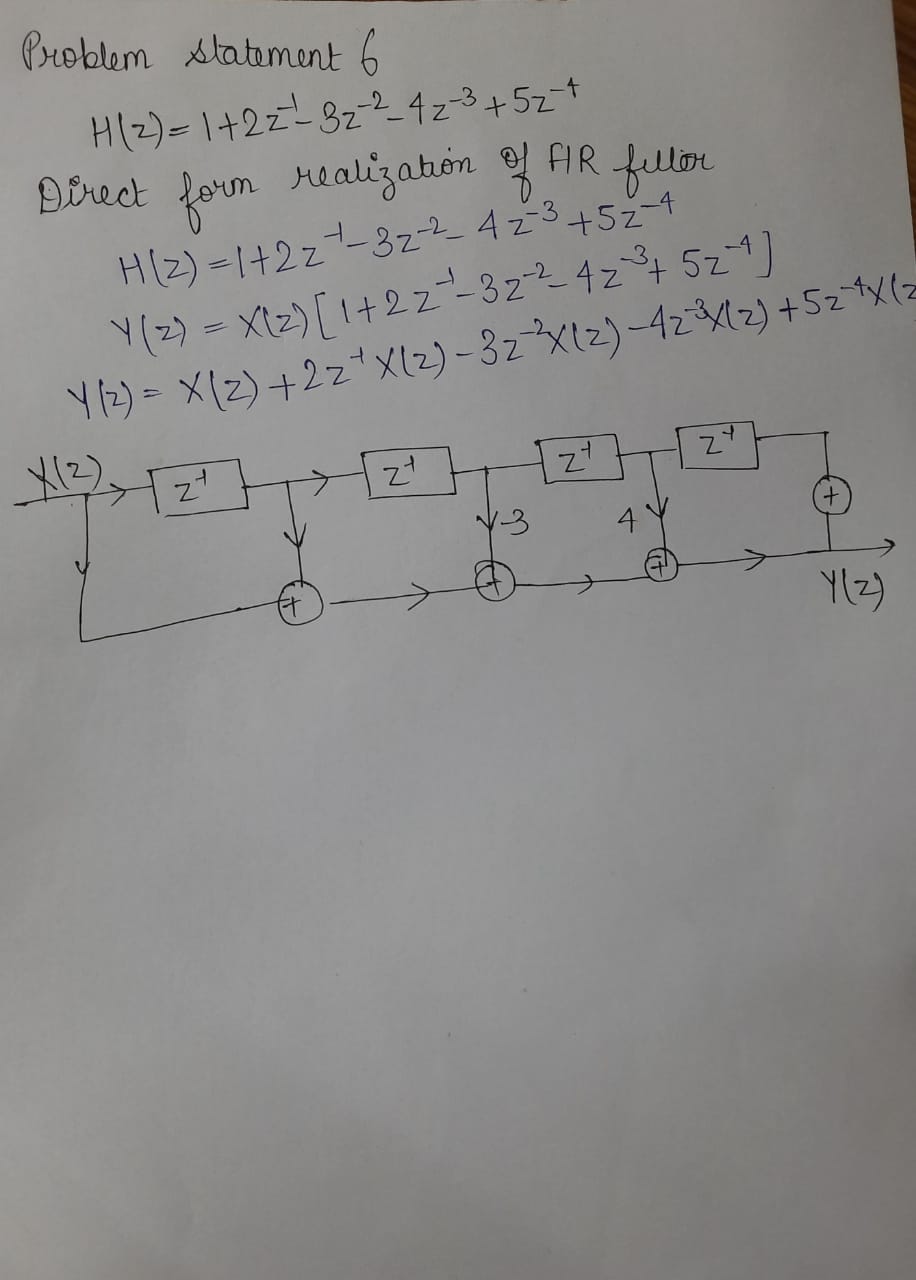 Problem statement 6
H(z) = 1+2z⁻¹-3z⁻²-4z⁻³+5z⁻⁴
Direct form realization of FIR filter
H(z) = 1+2z⁻¹-3z⁻²-4z⁻³+5z⁻⁴
Y(z) = X(z)[1+2z⁻¹-3z⁻²-4z⁻³+5z⁻⁴]
Y(z) = X(z)+2z⁻¹X(z)-3z⁻²X(z)-4z⁻³X(z)+5z⁻⁴X(z
X(z) z⁻¹ z⁻¹ z⁻¹ z⁻¹
-3 4 +
+ + +
Y(z)